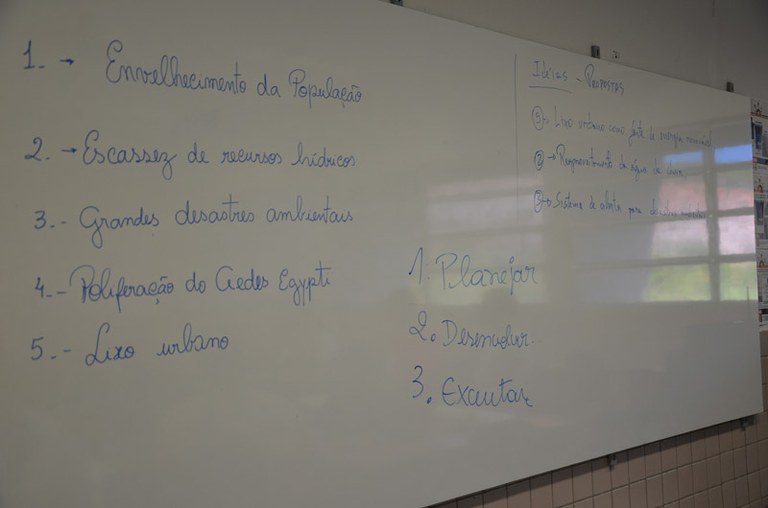 1. → Envelhecimento da População
2. → Escassez de recursos hídricos
3. - Grandes desastres ambientais
4. - Poliferação do Aedes Egypti
5. - Lixo urbano
Ideias - Propostas
⑤→ Lixo urbano como fonte de energia
②→ Reaproveitamento da água da chuva
③→ Sistema de alerta para desastres
1. Planejar
2. Desenvolver
3. Executar